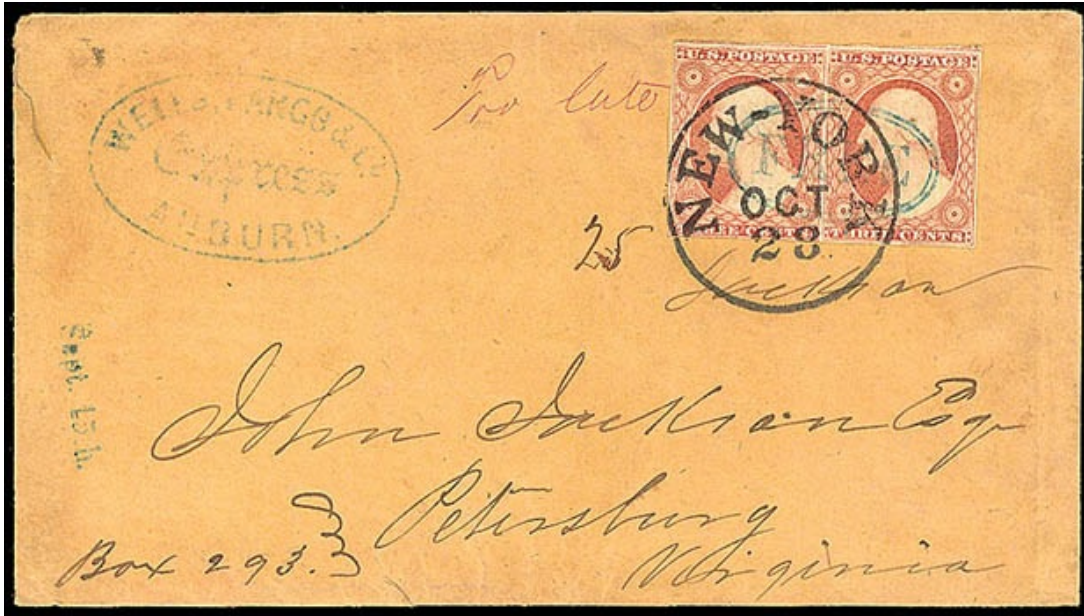 WELLS, FARGO & Co
Express
AUBURN.
Too late
U.S. POSTAGE U.S. POSTAGE
THREE CENTS THREE CENTS
NEW-YORK
OCT
28
25
Jackson
Sept. 15th.
John Jackson Esqr
Petersburg
Virginia
Box 293.